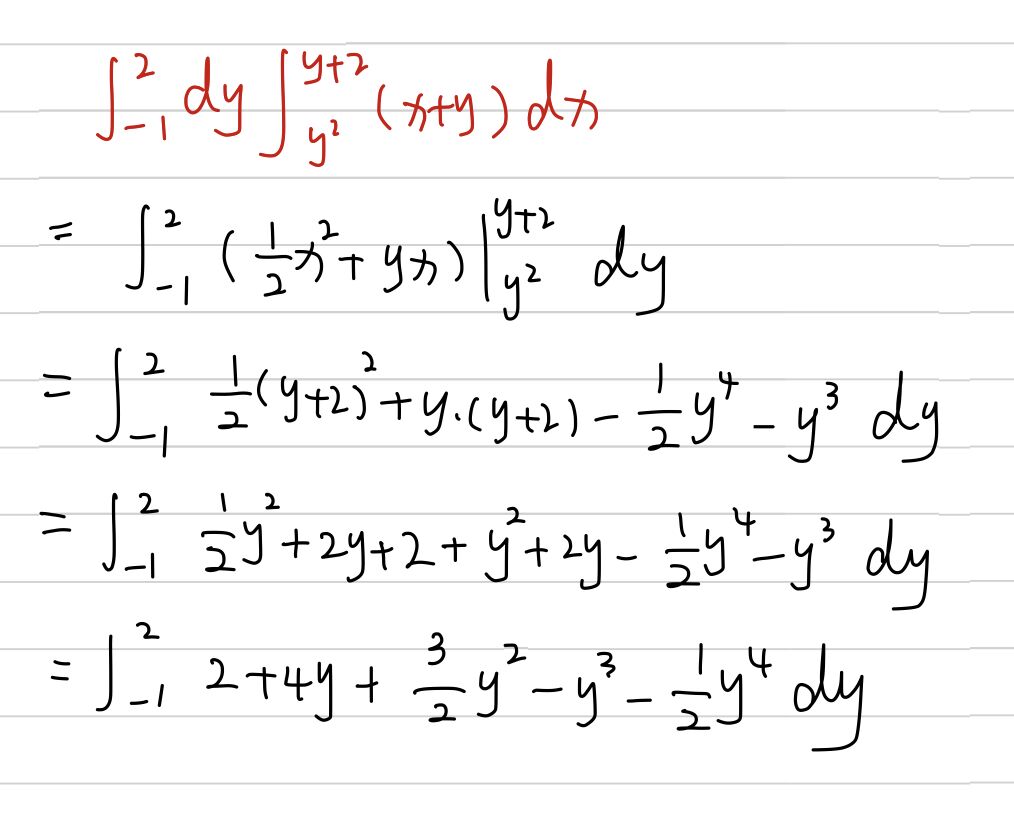 ∫_{-1}^{2} dy ∫_{y²}^{y+2} (x+y) dx
= ∫_{-1}^{2} (1/2 x² + yx) |_{y²}^{y+2} dy
= ∫_{-1}^{2} 1/2 (y+2)² + y·(y+2) - 1/2 y⁴ - y³ dy
= ∫_{-1}^{2} 1/2 y² + 2y + 2 + y² + 2y - 1/2 y⁴ - y³ dy
= ∫_{-1}^{2} 2 + 4y + 3/2 y² - y³ - 1/2 y⁴ dy